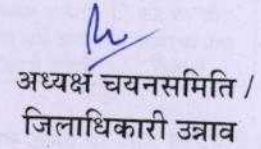 अध्यक्ष चयनसमिति /
जिलाधिकारी उन्नाव